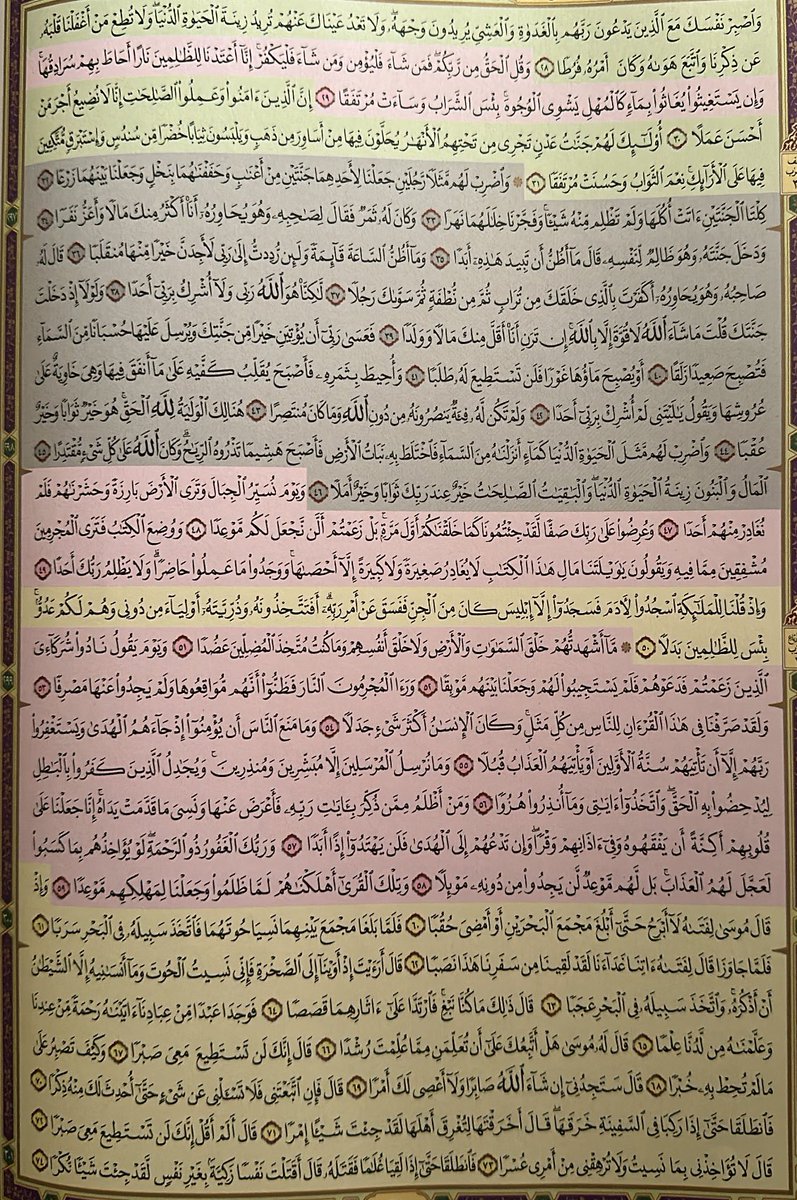 وَٱصۡبِرۡ نَفۡسَكَ مَعَ ٱلَّذِينَ يَدۡعُونَ رَبَّهُم بِٱلۡغَدَوٰةِ وَٱلۡعَشِيِّ يُرِيدُونَ وَجۡهَهُۥۖ وَلَا تَعۡدُ عَيۡنَاكَ عَنۡهُمۡ تُرِيدُ زِينَةَ ٱلۡحَيَوٰةِ ٱلدُّنۡيَاۖ وَلَا تُطِعۡ مَنۡ أَغۡفَلۡنَا قَلۡبَهُۥ
عَن ذِكۡرِنَا وَٱتَّبَعَ هَوَىٰهُ وَكَانَ أَمۡرُهُۥ فُرُطٗا ٢٨ وَقُلِ ٱلۡحَقُّ مِن رَّبِّكُمۡۖ فَمَن شَآءَ فَلۡيُؤۡمِن وَمَن شَآءَ فَلۡيَكۡفُرۡۚ إِنَّآ أَعۡتَدۡنَا لِلظَّٰلِمِينَ نَارًا أَحَاطَ بِهِمۡ سُرَادِقُهَاۚ
وَإِن يَسۡتَغِيثُواْ يُغَاثُواْ بِمَآءٖ كَٱلۡمُهۡلِ يَشۡوِي ٱلۡوُجُوهَۚ بِئۡسَ ٱلشَّرَابُ وَسَآءَتۡ مُرۡتَفَقًا ٢٩ إِنَّ ٱلَّذِينَ ءَامَنُواْ وَعَمِلُواْ ٱلصَّٰلِحَٰتِ إِنَّا لَا نُضِيعُ أَجۡرَ مَنۡ
أَحۡسَنَ عَمَلًا ٣٠ أُوْلَٰٓئِكَ لَهُمۡ جَنَّٰتُ عَدۡنٖ تَجۡرِي مِن تَحۡتِهِمُ ٱلۡأَنۡهَٰرُ يُحَلَّوۡنَ فِيهَا مِنۡ أَسَاوِرَ مِن ذَهَبٖ وَيَلۡبَسُونَ ثِيَابًا خُضۡرٗا مِّن سُندُسٖ وَإِسۡتَبۡرَقٖ مُّتَّكِـِٔينَ
فِيهَا عَلَى ٱلۡأَرَآئِكِۚ نِعۡمَ ٱلثَّوَابُ وَحَسُنَتۡ مُرۡتَفَقٗا ٣١ ۞ وَٱضۡرِبۡ لَهُم مَّثَلٗا رَّجُلَيۡنِ جَعَلۡنَا لِأَحَدِهِمَا جَنَّتَيۡنِ مِنۡ أَعۡنَٰبٖ وَحَفَفۡنَٰهُمَا بِنَخۡلٖ وَجَعَلۡنَا بَيۡنَهُمَا زَرۡعٗا ٣٢
كِلۡتَا ٱلۡجَنَّتَيۡنِ ءَاتَتۡ أُكُلَهَا وَلَمۡ تَظۡلِم مِّنۡهُ شَيۡـٔٗاۚ وَفَجَّرۡنَا خِلَٰلَهُمَا نَهَرٗا ٣٣ وَكَانَ لَهُۥ ثَمَرٞ فَقَالَ لِصَٰحِبِهِۦ وَهُوَ يُحَاوِرُهُۥٓ أَنَا۠ أَكۡثَرُ مِنكَ مَالٗا وَأَعَزُّ نَفَرٗا ٣٤
وَدَخَلَ جَنَّتَهُۥ وَهُوَ ظَالِمٞ لِّنَفۡسِهِۦ قَالَ مَآ أَظُنُّ أَن تَبِيدَ هَٰذِهِۦٓ أَبَدٗا ٣٥ وَمَآ أَظُنُّ ٱلسَّاعَةَ قَآئِمَةٗ وَلَئِن رُّدِدتُّ إِلَىٰ رَبِّي لَأَجِدَنَّ خَيۡرٗا مِّنۡهَا مُنقَلَبٗا ٣٦ قَالَ لَهُۥ
صَاحِبُهُۥ وَهُوَ يُحَاوِرُهُۥٓ أَكَفَرۡتَ بِٱلَّذِي خَلَقَكَ مِن تُرَابٖ ثُمَّ مِن نُّطۡفَةٖ ثُمَّ سَوَّىٰكَ رَجُلٗا ٣٧ لَّٰكِنَّا۠ هُوَ ٱللَّهُ رَبِّي وَلَآ أُشۡرِكُ بِرَبِّيٓ أَحَدٗا ٣٨ وَلَوۡلَآ إِذۡ دَخَلۡتَ
جَنَّتَكَ قُلۡتَ مَا شَآءَ ٱللَّهُ لَا قُوَّةَ إِلَّا بِٱللَّهِۚ إِن تَرَنِ أَنَا۠ أَقَلَّ مِنكَ مَالٗا وَوَلَدٗا ٣٩ فَعَسَىٰ رَبِّيٓ أَن يُؤۡتِيَنِ خَيۡرٗا مِّن جَنَّتِكَ وَيُرۡسِلَ عَلَيۡهَا حُسۡبَانٗا مِّنَ ٱلسَّمَآءِ
فَتُصۡبِحَ صَعِيدٗا زَلَقًا ٤٠ أَوۡ يُصۡبِحَ مَآؤُهَا غَوۡرٗا فَلَن تَسۡتَطِيعَ لَهُۥ طَلَبٗا ٤١ وَأُحِيطَ بِثَمَرِهِۦ فَأَصۡبَحَ يُقَلِّبُ كَفَّيۡهِ عَلَىٰ مَآ أَنفَقَ فِيهَا وَهِيَ خَاوِيَةٌ عَلَىٰ
عُرُوشِهَا وَيَقُولُ يَٰلَيۡتَنِي لَمۡ أُشۡرِكۡ بِرَبِّيٓ أَحَدٗا ٤٢ وَلَمۡ تَكُن لَّهُۥ فِئَةٞ يَنصُرُونَهُۥ مِن دُونِ ٱللَّهِ وَمَا كَانَ مُنتَصِرًا ٤٣ هُنَالِكَ ٱلۡوَلَٰيَةُ لِلَّهِ ٱلۡحَقِّۚ هُوَ خَيۡرٞ ثَوَابٗا وَخَيۡرٌ
عُقۡبٗا ٤٤ وَٱضۡرِبۡ لَهُم مَّثَلَ ٱلۡحَيَوٰةِ ٱلدُّنۡيَا كَمَآءٍ أَنزَلۡنَٰهُ مِنَ ٱلسَّمَآءِ فَٱخۡتَلَطَ بِهِۦ نَبَاتُ ٱلۡأَرۡضِ فَأَصۡبَحَ هَشِيمٗا تَذۡرُوهُ ٱلرِّيَٰحُۗ وَكَانَ ٱللَّهُ عَلَىٰ كُلِّ شَيۡءٖ مُّقۡتَدِرًا ٤٥
ٱلۡمَالُ وَٱلۡبَنُونَ زِينَةُ ٱلۡحَيَوٰةِ ٱلدُّنۡيَاۖ وَٱلۡبَٰقِيَٰتُ ٱلصَّٰلِحَٰتُ خَيۡرٌ عِندَ رَبِّكَ ثَوَابٗا وَخَيۡرٌ أَمَلٗا ٤٦ وَيَوۡمَ نُسَيِّرُ ٱلۡجِبَالَ وَتَرَى ٱلۡأَرۡضَ بَارِزَةٗ وَحَشَرۡنَٰهُمۡ فَلَمۡ
نُغَادِرۡ مِنۡهُمۡ أَحَدٗا ٤٧ وَعُرِضُواْ عَلَىٰ رَبِّكَ صَفّٗا لَّقَدۡ جِئۡتُمُونَا كَمَا خَلَقۡنَٰكُمۡ أَوَّلَ مَرَّةِۭۚ بَلۡ زَعَمۡتُمۡ أَلَّن نَّجۡعَلَ لَكُم مَّوۡعِدٗا ٤٨ وَوُضِعَ ٱلۡكِتَٰبُ فَتَرَى ٱلۡمُجۡرِمِينَ
مُشۡفِقِينَ مِمَّا فِيهِ وَيَقُولُونَ يَٰوَيۡلَتَنَا مَالِ هَٰذَا ٱلۡكِتَٰبِ لَا يُغَادِرُ صَغِيرَةٗ وَلَا كَبِيرَةً إِلَّآ أَحۡصَىٰهَاۚ وَوَجَدُواْ مَا عَمِلُواْ حَاضِرٗاۗ وَلَا يَظۡلِمُ رَبُّكَ أَحَدٗا ٤٩
وَإِذۡ قُلۡنَا لِلۡمَلَٰٓئِكَةِ ٱسۡجُدُواْ لِأٓدَمَ فَسَجَدُوٓاْ إِلَّآ إِبۡلِيسَ كَانَ مِنَ ٱلۡجِنِّ فَفَسَقَ عَنۡ أَمۡرِ رَبِّهِۦٓۗ أَفَتَتَّخِذُونَهُۥ وَذُرِّيَّتَهُۥٓ أَوۡلِيَآءَ مِن دُونِي وَهُمۡ لَكُمۡ عَدُوُّۢۚ
بِئۡسَ لِلظَّٰلِمِينَ بَدَلٗا ٥٠ ۞ مَّآ أَشۡهَدتُّهُمۡ خَلۡقَ ٱلسَّمَٰوَٰتِ وَٱلۡأَرۡضِ وَلَا خَلۡقَ أَنفُسِهِمۡ وَمَا كُنتُ مُتَّخِذَ ٱلۡمُضِلِّينَ عَضُدٗا ٥١ وَيَوۡمَ يَقُولُ نَادُواْ شُرَكَآءِيَ
ٱلَّذِينَ زَعَمۡتُمۡ فَدَعَوۡهُمۡ فَلَمۡ يَسۡتَجِيبُواْ لَهُمۡ وَجَعَلۡنَا بَيۡنَهُم مَّوۡبِقٗا ٥٢ وَرَءَا ٱلۡمُجۡرِمُونَ ٱلنَّارَ فَظَنُّوٓاْ أَنَّهُم مُّوَاقِعُوهَا وَلَمۡ يَجِدُواْ عَنۡهَا مَصۡرِفٗا ٥٣
وَلَقَدۡ صَرَّفۡنَا فِي هَٰذَا ٱلۡقُرۡءَانِ لِلنَّاسِ مِن كُلِّ مَثَلٖۚ وَكَانَ ٱلۡإِنسَٰنُ أَكۡثَرَ شَيۡءٖ جَدَلٗا ٥٤ وَمَا مَنَعَ ٱلنَّاسَ أَن يُؤۡمِنُوٓاْ إِذۡ جَآءَهُمُ ٱلۡهُدَىٰ وَيَسۡتَغۡفِرُواْ
رَبَّهُمۡ إِلَّآ أَن تَأۡتِيَهُمۡ سُنَّةُ ٱلۡأَوَّلِينَ أَوۡ يَأۡتِيَهُمُ ٱلۡعَذَابُ قُبُلٗا ٥٥ وَمَا نُرۡسِلُ ٱلۡمُرۡسَلِينَ إِلَّا مُبَشِّرِينَ وَمُنذِرِينَۚ وَيُجَٰدِلُ ٱلَّذِينَ كَفَرُواْ بِٱلۡبَٰطِلِ
لِيُدۡحِضُواْ بِهِ ٱلۡحَقَّۖ وَٱتَّخَذُوٓاْ ءَايَٰتِي وَمَآ أُنذِرُواْ هُزُوٗا ٥٦ وَمَنۡ أَظۡلَمُ مِمَّن ذُكِّرَ بِـَٔايَٰتِ رَبِّهِۦ فَأَعۡرَضَ عَنۡهَا وَنَسِيَ مَا قَدَّمَتۡ يَدَاهُۚ إِنَّا جَعَلۡنَا عَلَىٰ
قُلُوبِهِمۡ أَكِنَّةً أَن يَفۡقَهُوهُ وَفِيٓ ءَاذَانِهِمۡ وَقۡرٗاۖ وَإِن تَدۡعُهُمۡ إِلَى ٱلۡهُدَىٰ فَلَن يَهۡتَدُوٓاْ إِذًا أَبَدٗا ٥٧ وَرَبُّكَ ٱلۡغَفُورُ ذُو ٱلرَّحۡمَةِۖ لَوۡ يُؤَاخِذُهُم بِمَا كَسَبُواْ
لَعَجَّلَ لَهُمُ ٱلۡعَذَابَۚ بَل لَّهُم مَّوۡعِدٞ لَّن يَجِدُواْ مِن دُونِهِۦ مَوۡئِلٗا ٥٨ وَتِلۡكَ ٱلۡقُرَىٰٓ أَهۡلَكۡنَٰهُمۡ لَمَّا ظَلَمُواْ وَجَعَلۡنَا لِمَهۡلِكِهِم مَّوۡعِدٗا ٥٩ وَإِذۡ
قَالَ مُوسَىٰ لِفَتَىٰهُ لَآ أَبۡرَحُ حَتَّىٰٓ أَبۡلُغَ مَجۡمَعَ ٱلۡبَحۡرَيۡنِ أَوۡ أَمۡضِيَ حُقُبٗا ٦٠ فَلَمَّا بَلَغَا مَجۡمَعَ بَيۡنِهِمَا نَسِيَا حُوتَهُمَا فَٱتَّخَذَ سَبِيلَهُۥ فِي ٱلۡبَحۡرِ سَرَبٗا ٦١
فَلَمَّا جَاوَزَا قَالَ لِفَتَىٰهُ ءَاتِنَا غَدَآءَنَا لَقَدۡ لَقِينَا مِن سَفَرِنَا هَٰذَا نَصَبٗا ٦٢ قَالَ أَرَءَيۡتَ إِذۡ أَوَيۡنَآ إِلَى ٱلصَّخۡرَةِ فَإِنِّي نَسِيتُ ٱلۡحُوتَ وَمَآ أَنسَىٰنِيهُ إِلَّا ٱلشَّيۡطَٰنُ
أَنۡ أَذۡكُرَهُۥۚ وَٱتَّخَذَ سَبِيلَهُۥ فِي ٱلۡبَحۡرِ عَجَبٗا ٦٣ قَالَ ذَٰلِكَ مَا كُنَّا نَبۡغِۚ فَٱرۡتَدَّا عَلَىٰٓ ءَاثَارِهِمَا قَصَصٗا ٦٤ فَوَجَدَا عَبۡدٗا مِّنۡ عِبَادِنَآ ءَاتَيۡنَٰهُ رَحۡمَةٗ مِّنۡ عِندِنَا
وَعَلَّمۡنَٰهُ مِن لَّدُنَّا عِلۡمٗا ٦٥ قَالَ لَهُۥ مُوسَىٰ هَلۡ أَتَّبِعُكَ عَلَىٰٓ أَن تُعَلِّمَنِ مِمَّا عُلِّمۡتَ رُشۡدٗا ٦٦ قَالَ إِنَّكَ لَن تَسۡتَطِيعَ مَعِيَ صَبۡرٗا ٦٧ وَكَيۡفَ تَصۡبِرُ عَلَىٰ
مَا لَمۡ تُحِطۡ بِهِۦ خُبۡرٗا ٦٨ قَالَ سَتَجِدُنِيٓ إِن شَآءَ ٱللَّهُ صَابِرٗا وَلَآ أَعۡصِي لَكَ أَمۡرٗا ٦٩ قَالَ فَإِنِ ٱتَّبَعۡتَنِي فَلَا تَسۡـَٔلۡنِي عَن شَيۡءٍ حَتَّىٰٓ أُحۡدِثَ لَكَ مِنۡهُ ذِكۡرٗا ٧٠
فَٱنطَلَقَا حَتَّىٰٓ إِذَا رَكِبَا فِي ٱلسَّفِينَةِ خَرَقَهَاۖ قَالَ أَخَرَقۡتَهَا لِتُغۡرِقَ أَهۡلَهَا لَقَدۡ جِئۡتَ شَيۡـًٔا إِمۡرٗا ٧١ قَالَ أَلَمۡ أَقُلۡ إِنَّكَ لَن تَسۡتَطِيعَ مَعِيَ صَبۡرٗا ٧٢
قَالَ لَا تُؤَاخِذۡنِي بِمَا نَسِيتُ وَلَا تُرۡهِقۡنِي مِنۡ أَمۡرِي عُسۡرٗا ٧٣ فَٱنطَلَقَا حَتَّىٰٓ إِذَا لَقِيَا غُلَٰمٗا فَقَتَلَهُۥ قَالَ أَقَتَلۡتَ نَفۡسٗا زَكِيَّةَۢ بِغَيۡرِ نَفۡسٖ لَّقَدۡ جِئۡتَ شَيۡـٔٗا نُّكۡرٗا ٧٤